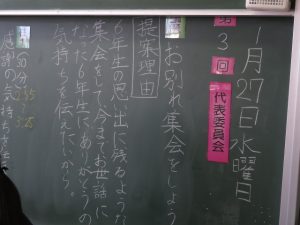 1月27日水曜日
第3回 代表委員会
お別れ集会をしよう
提案理由
6年生の思い出に残るような
集会をして、今までお世話に
なった6年生にありがとうの
気持ちを伝えたいから。
30分
感謝の気持ち